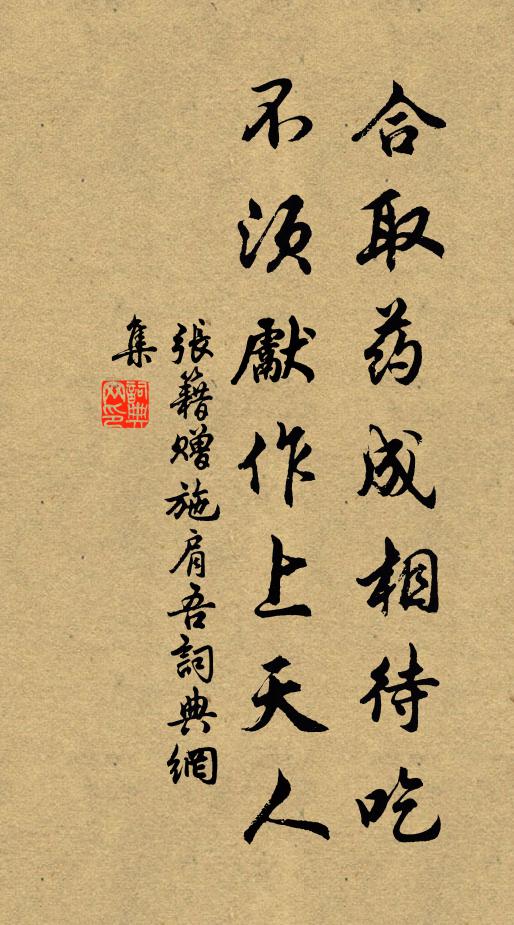 合取药成相待吃
不须獻作上天人
張籍赠施肩吾詞典網
集
詞典网印